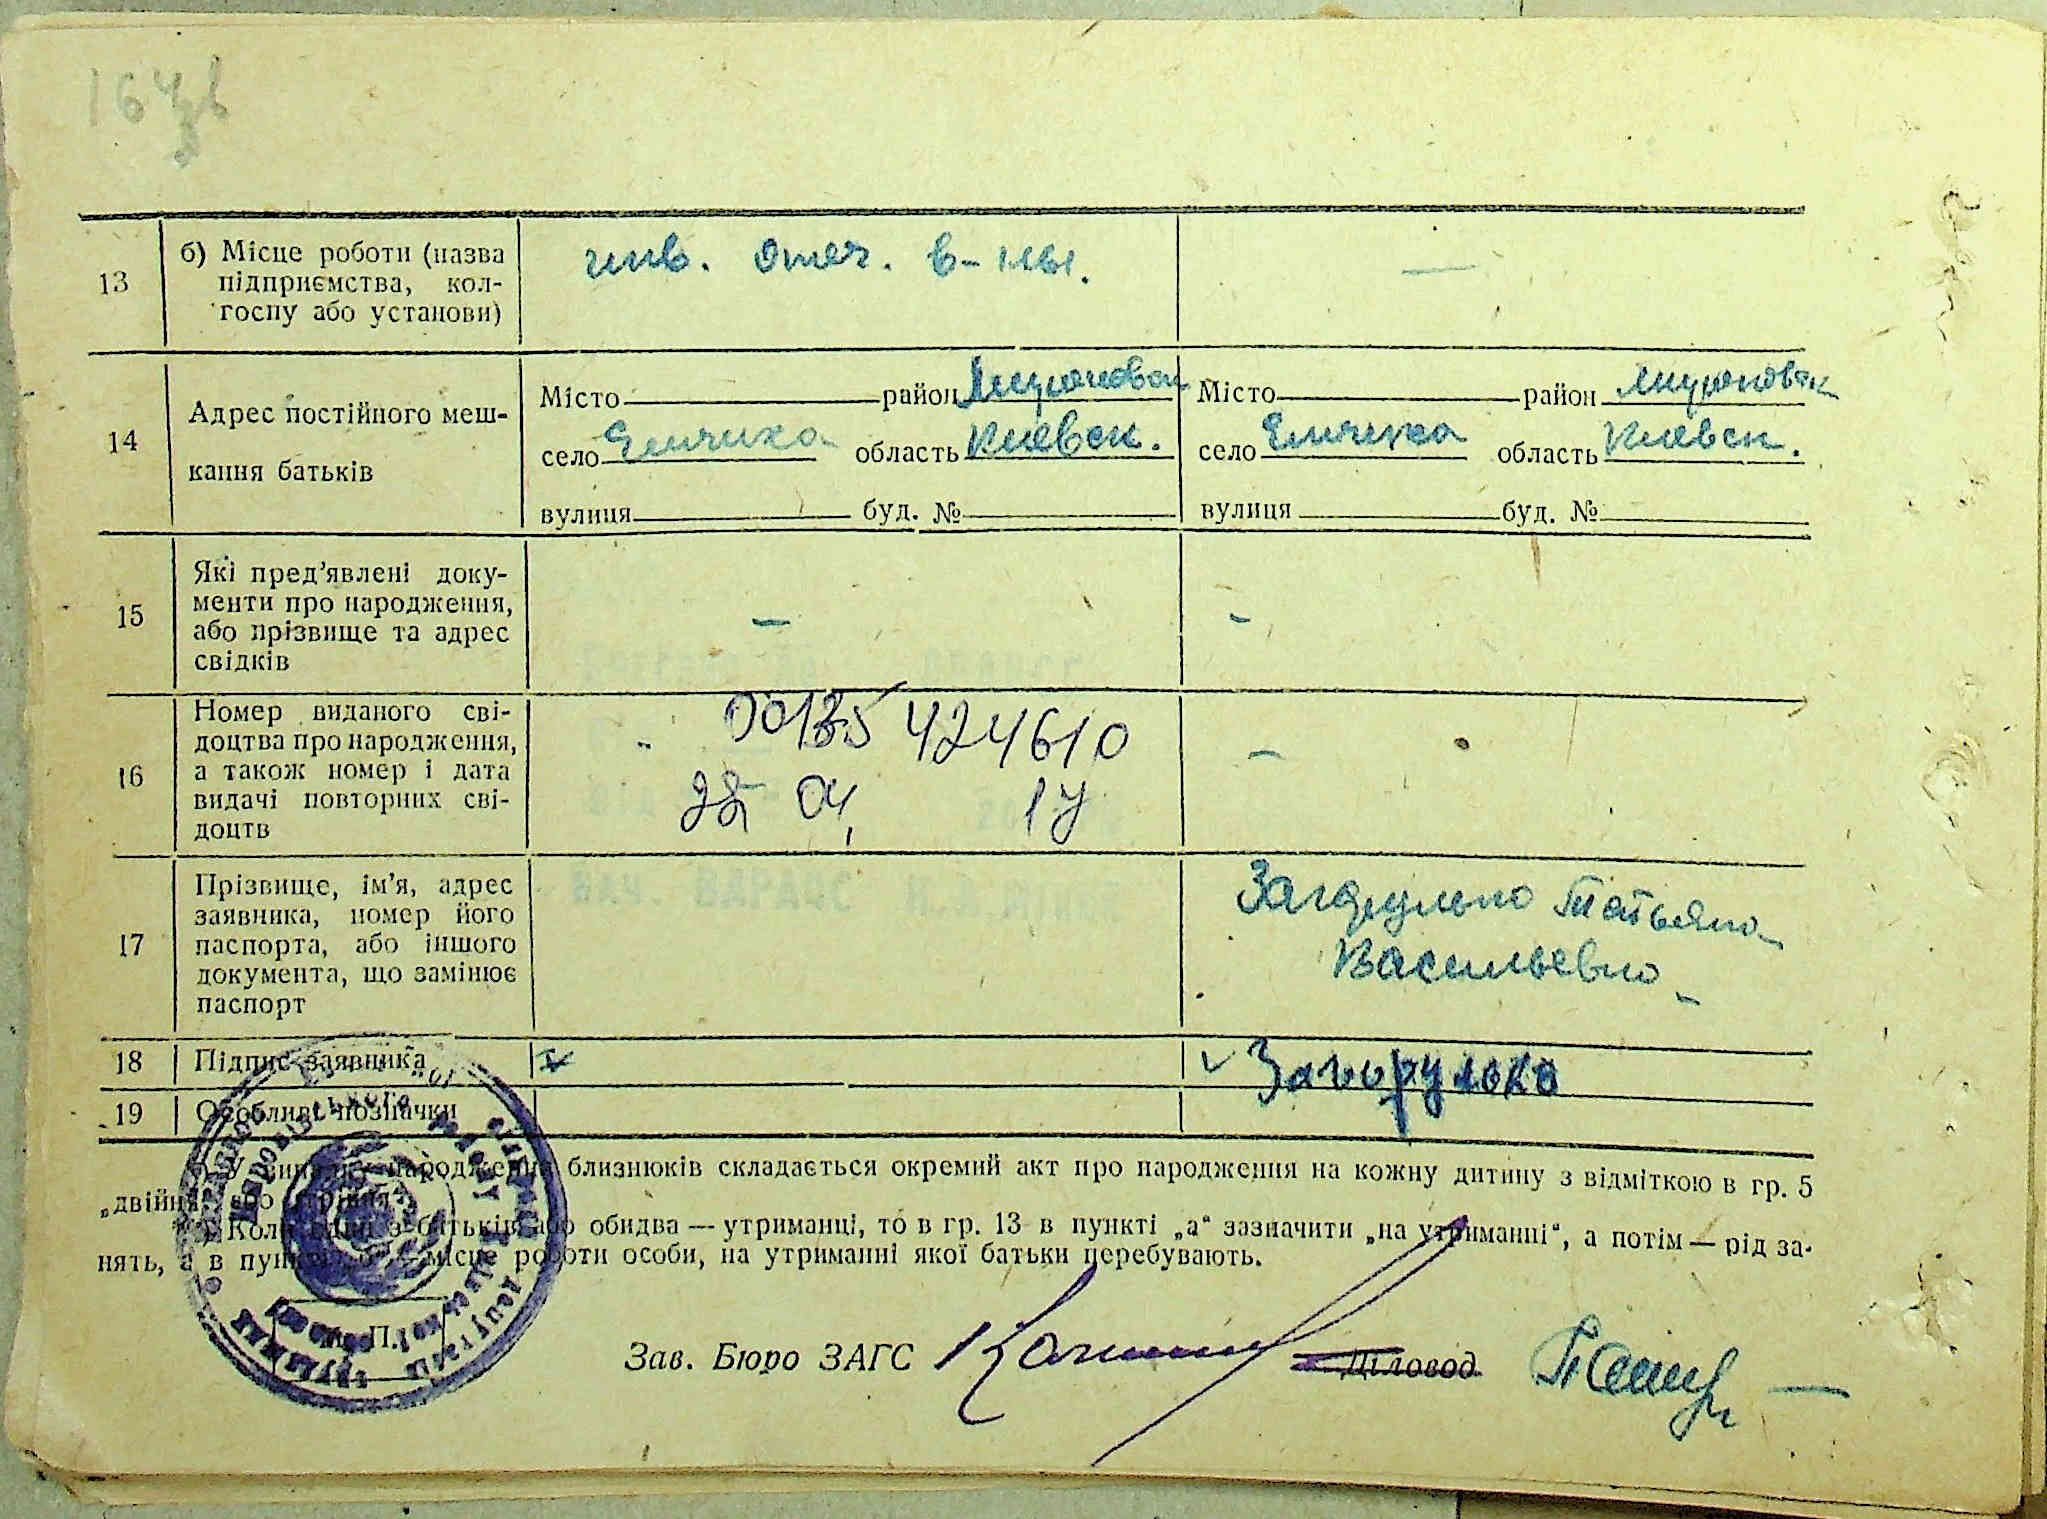 164 зв
13
б) Місце роботи (назва
підприємства, кол-
госпу або установи)
инв. отеч. в-ны.
—
14
Адрес постійного меш-
кання батьків
Місто район Мироновск
село Емчиха область Киевск.
вулиця буд. №
Місто район Мироновск
село Емчиха область Киевск.
вулиця буд. №
15
Які пред'явлені доку-
менти про народження,
або прізвище та адрес
свідків
–
–
16
Номер виданого сві-
доцтва про народження,
а також номер і дата
видачі повторних сві-
доцтв
424610
04, 14
–
17
Прізвище, ім'я, адрес
заявника, номер його
паспорта, або іншого
документа, що замінює
паспорт
Загорулько Татьяна
Васильевна
18
Підпис заявника
Загорулько
19
Особливі позначки
У випадку народження близнюків складається окремий акт про народження на кожну дитину з відміткою в гр. 5
„двійня" або
Коли один з батьків або обидва — утриманці, то в гр. 13 в пункті „а" зазначити „на утриманні", а потім — рід за-
нять, а в пункті місце роботи особи, на утриманні якої батьки перебувають.
М. П.
Зав. Бюро ЗАГС
Діловод